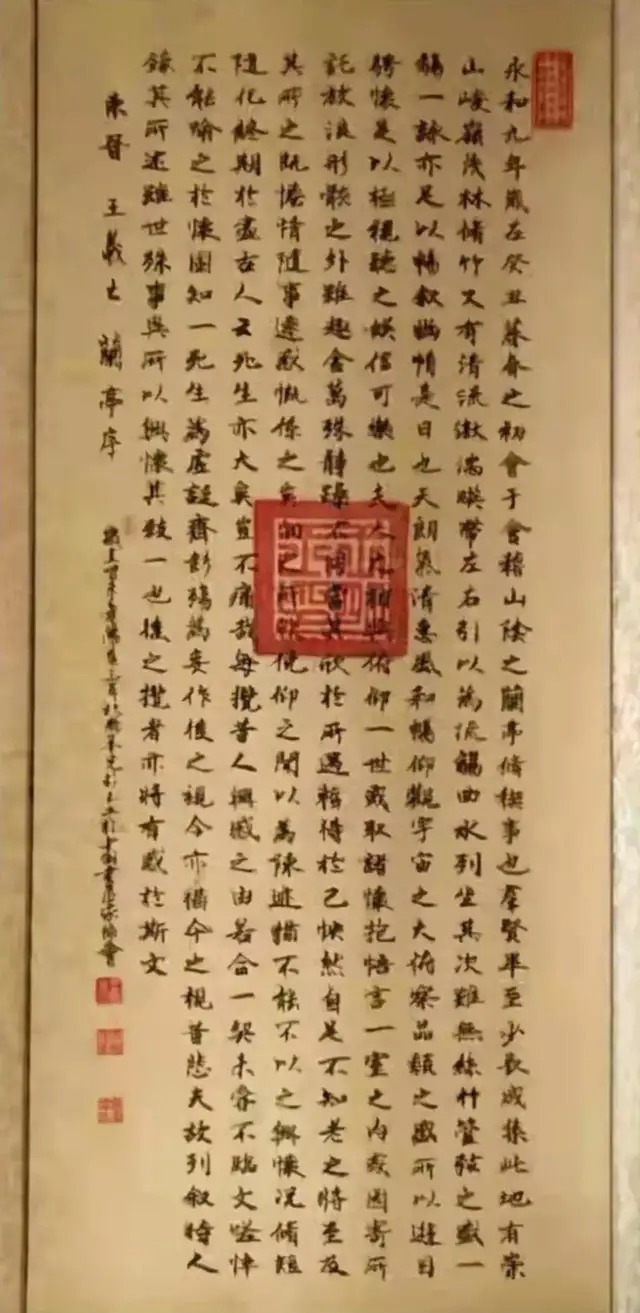 永和九年歲在癸丑暮春之初會于會稽山陰之蘭亭脩稧事也羣賢畢至少長咸集此地有崇
山峻嶺茂林脩竹又有清流激湍暎帶左右引以為流觴曲水列坐其次雖無絲竹管弦之盛一
觴一詠亦足以暢叙幽情是日也天朗氣清惠風和暢仰觀宇宙之大俯察品類之盛所以遊目
騁懷足以極視聽之娛信可樂也夫人之相與俯仰一世或取諸懷抱悟言一室之內或因寄所
託放浪形骸之外雖趣舍萬殊靜躁不同當其欣於所遇暫得於己怏然自足不知老之將至及
其所之既惓情隨事遷感慨係之矣向之所欣俛仰之閒以為陳迹猶不能不以之興懷況脩短
隨化終期於盡古人云死生亦大矣豈不痛哉每攬昔人興感之由若合一契未嘗不臨文嗟悼
不能喻之於懷固知一死生為虛誕齊彭殤為妄作後之視今亦猶今之視昔悲夫故列叙時人
錄其所述雖世殊事異所以興懷其致一也後之攬者亦將有感於斯文
東晉 王羲之 蘭亭序